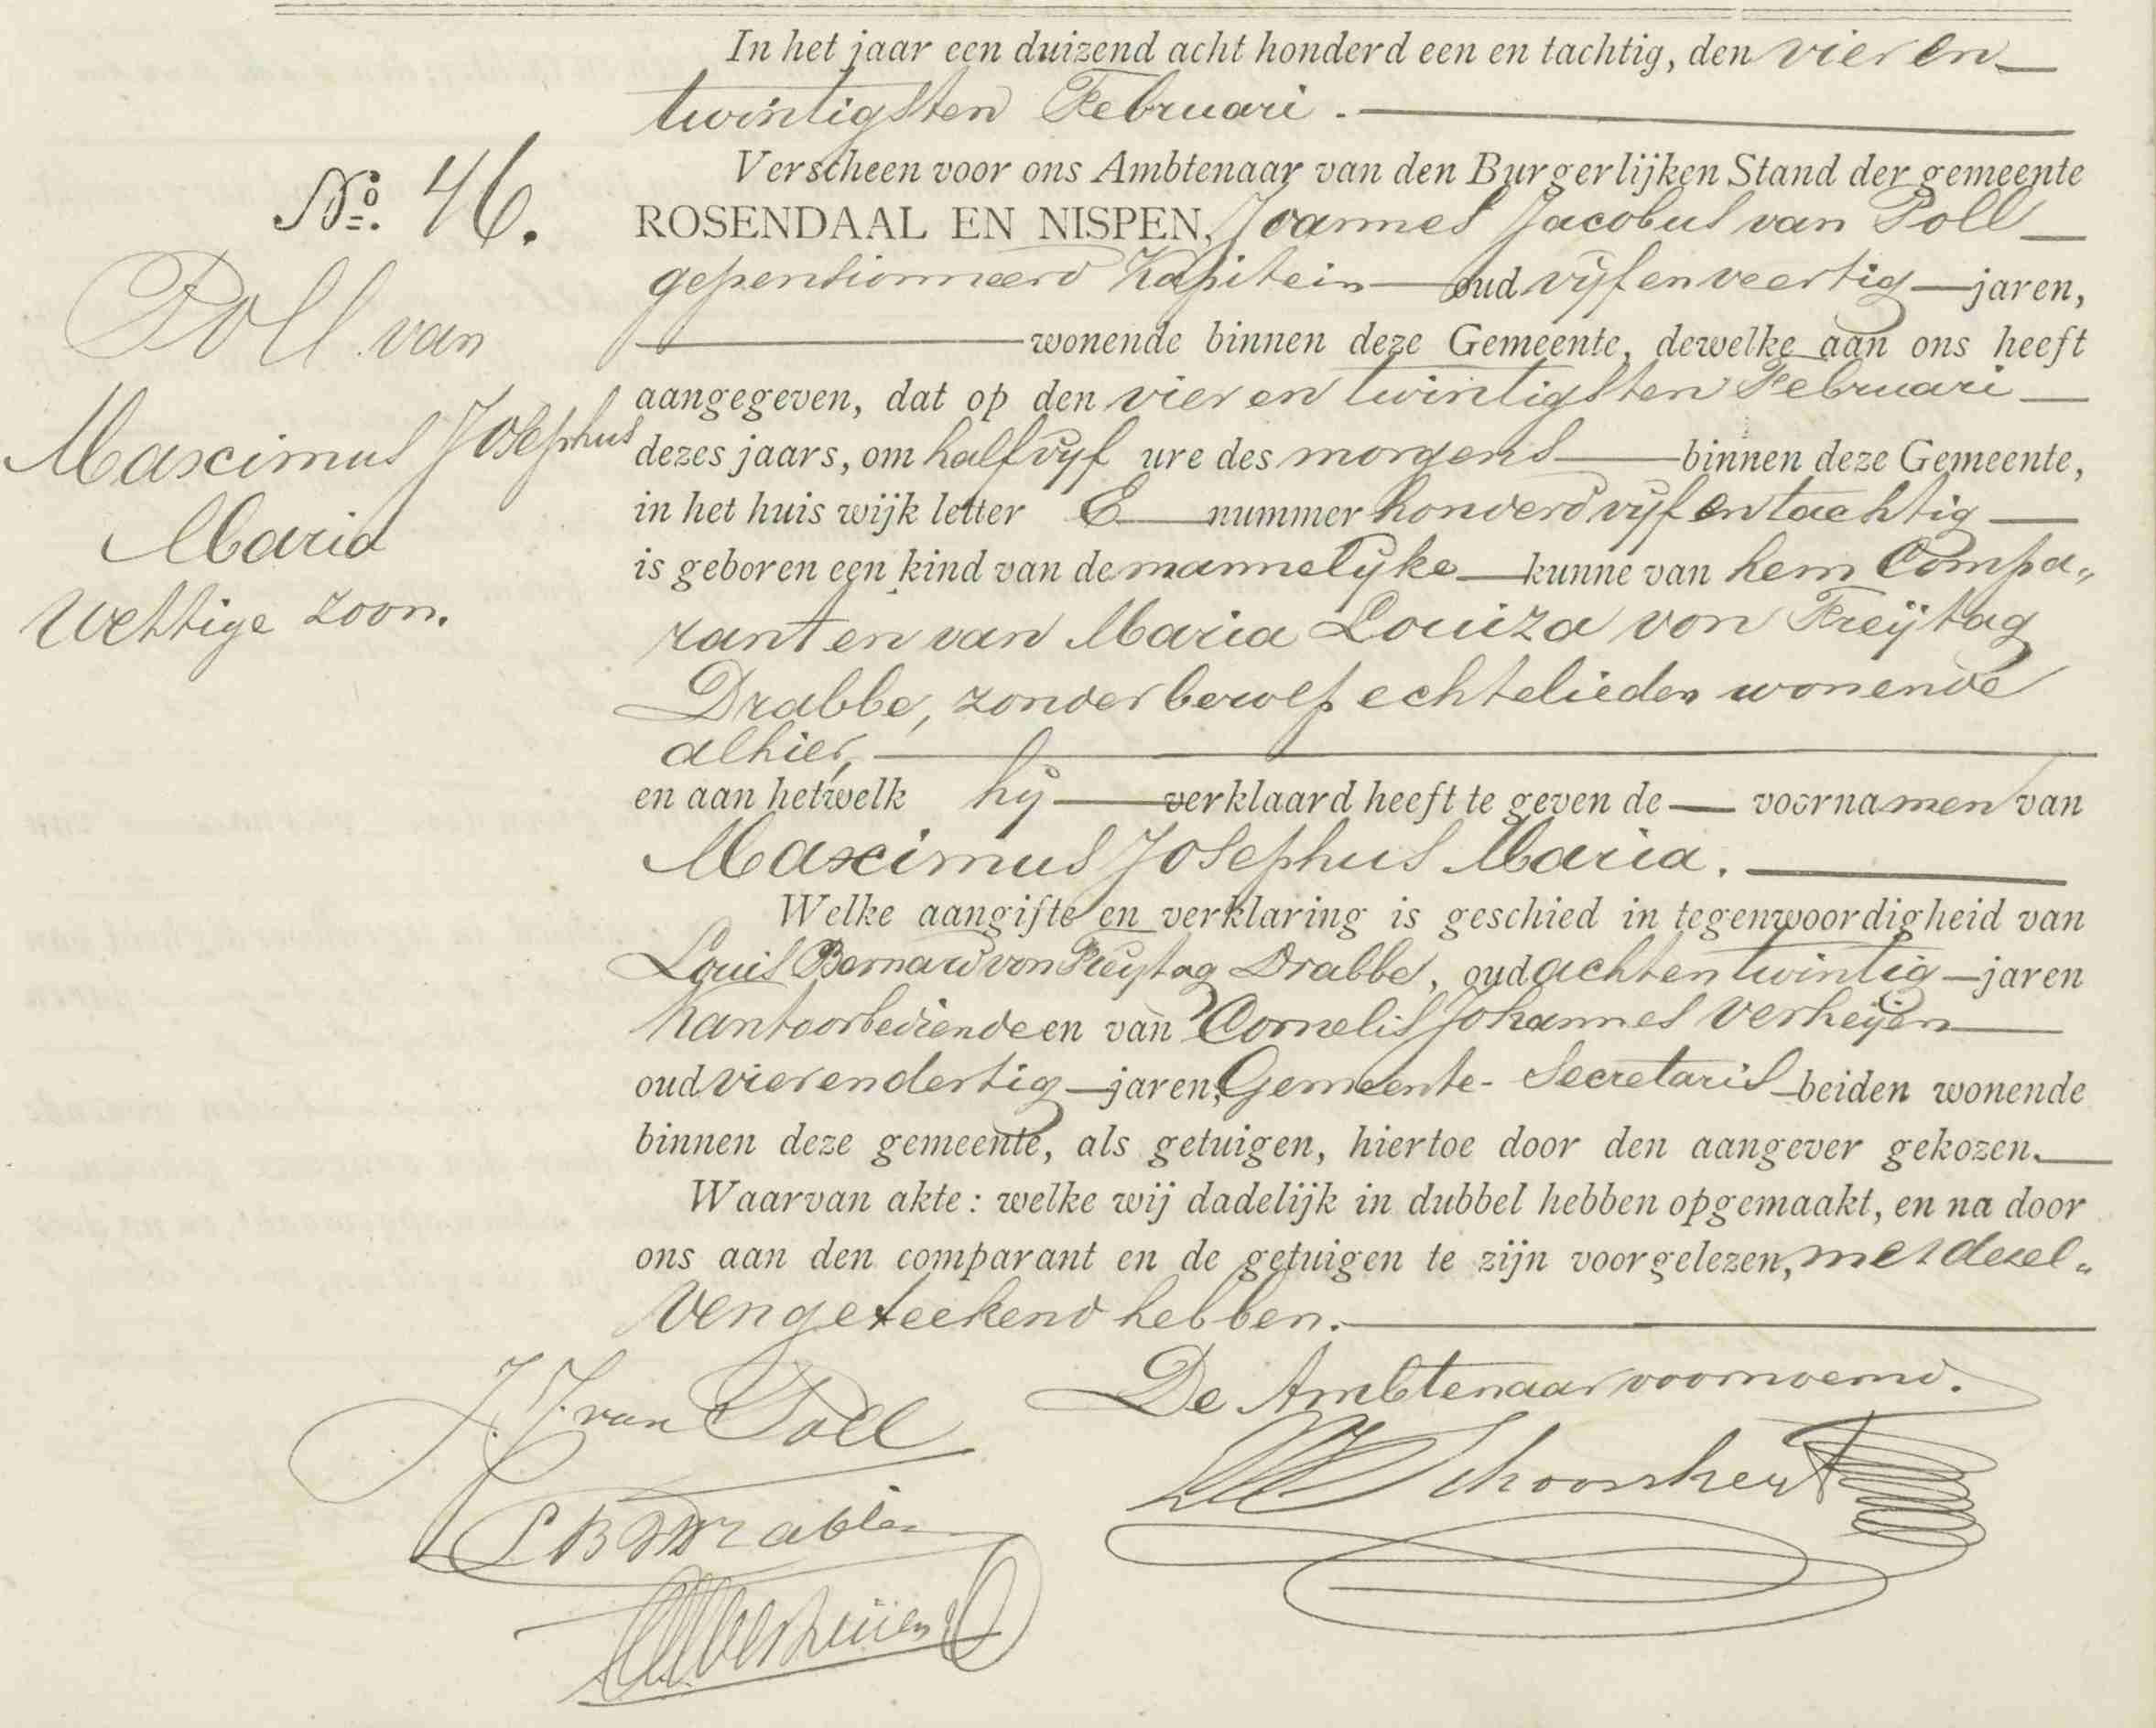 In het jaar een duizend acht honderd een en tachtig, den vier en
twintigsten Februari.
Verscheen voor ons Ambtenaar van den Burgerlijken Stand der gemeente
ROSENDAAL EN NISPEN, Joannes Jacobus van Poll
gepensionneerd Kapitein oud vijf en veertig jaren,
wonende binnen deze Gemeente, dewelke aan ons heeft
aangegeven, dat op den vier en twintigsten Februari
dezes jaars, om half vijf ure des morgens binnen deze Gemeente,
in het huis wijk letter E nummer honderd vijf en tachtig
is geboren een kind van de mannelijke kunne van hem Compa„
rant en van Maria Louiza von Freÿtag
Drabbe, zonder beroep echtelieden wonende
alhier,
en aan hetwelk hij verklaard heeft te geven de voornamen van
Maximus Josephus Maria.
Welke aangifte en verklaring is geschied in tegenwoordigheid van
Louis Bernard von Freytag Drabbe, oud acht en twintig jaren
Kantoorbediende en van Cornelis Johannes Verheÿen
oud vier en dertig jaren, Gemeente-Secretaris beiden wonende
binnen deze gemeente, als getuigen, hiertoe door den aangever gekozen.
Waarvan akte: welke wij dadelijk in dubbel hebben opgemaakt, en na door
ons aan den comparant en de getuigen te zijn voorgelezen, met dezel„
ven geteekend hebben.
No. 46.
Poll van
Maximus Josephus
Maria
Wettige zoon.
De Ambtenaar voornoemd.
J. J. van Poll